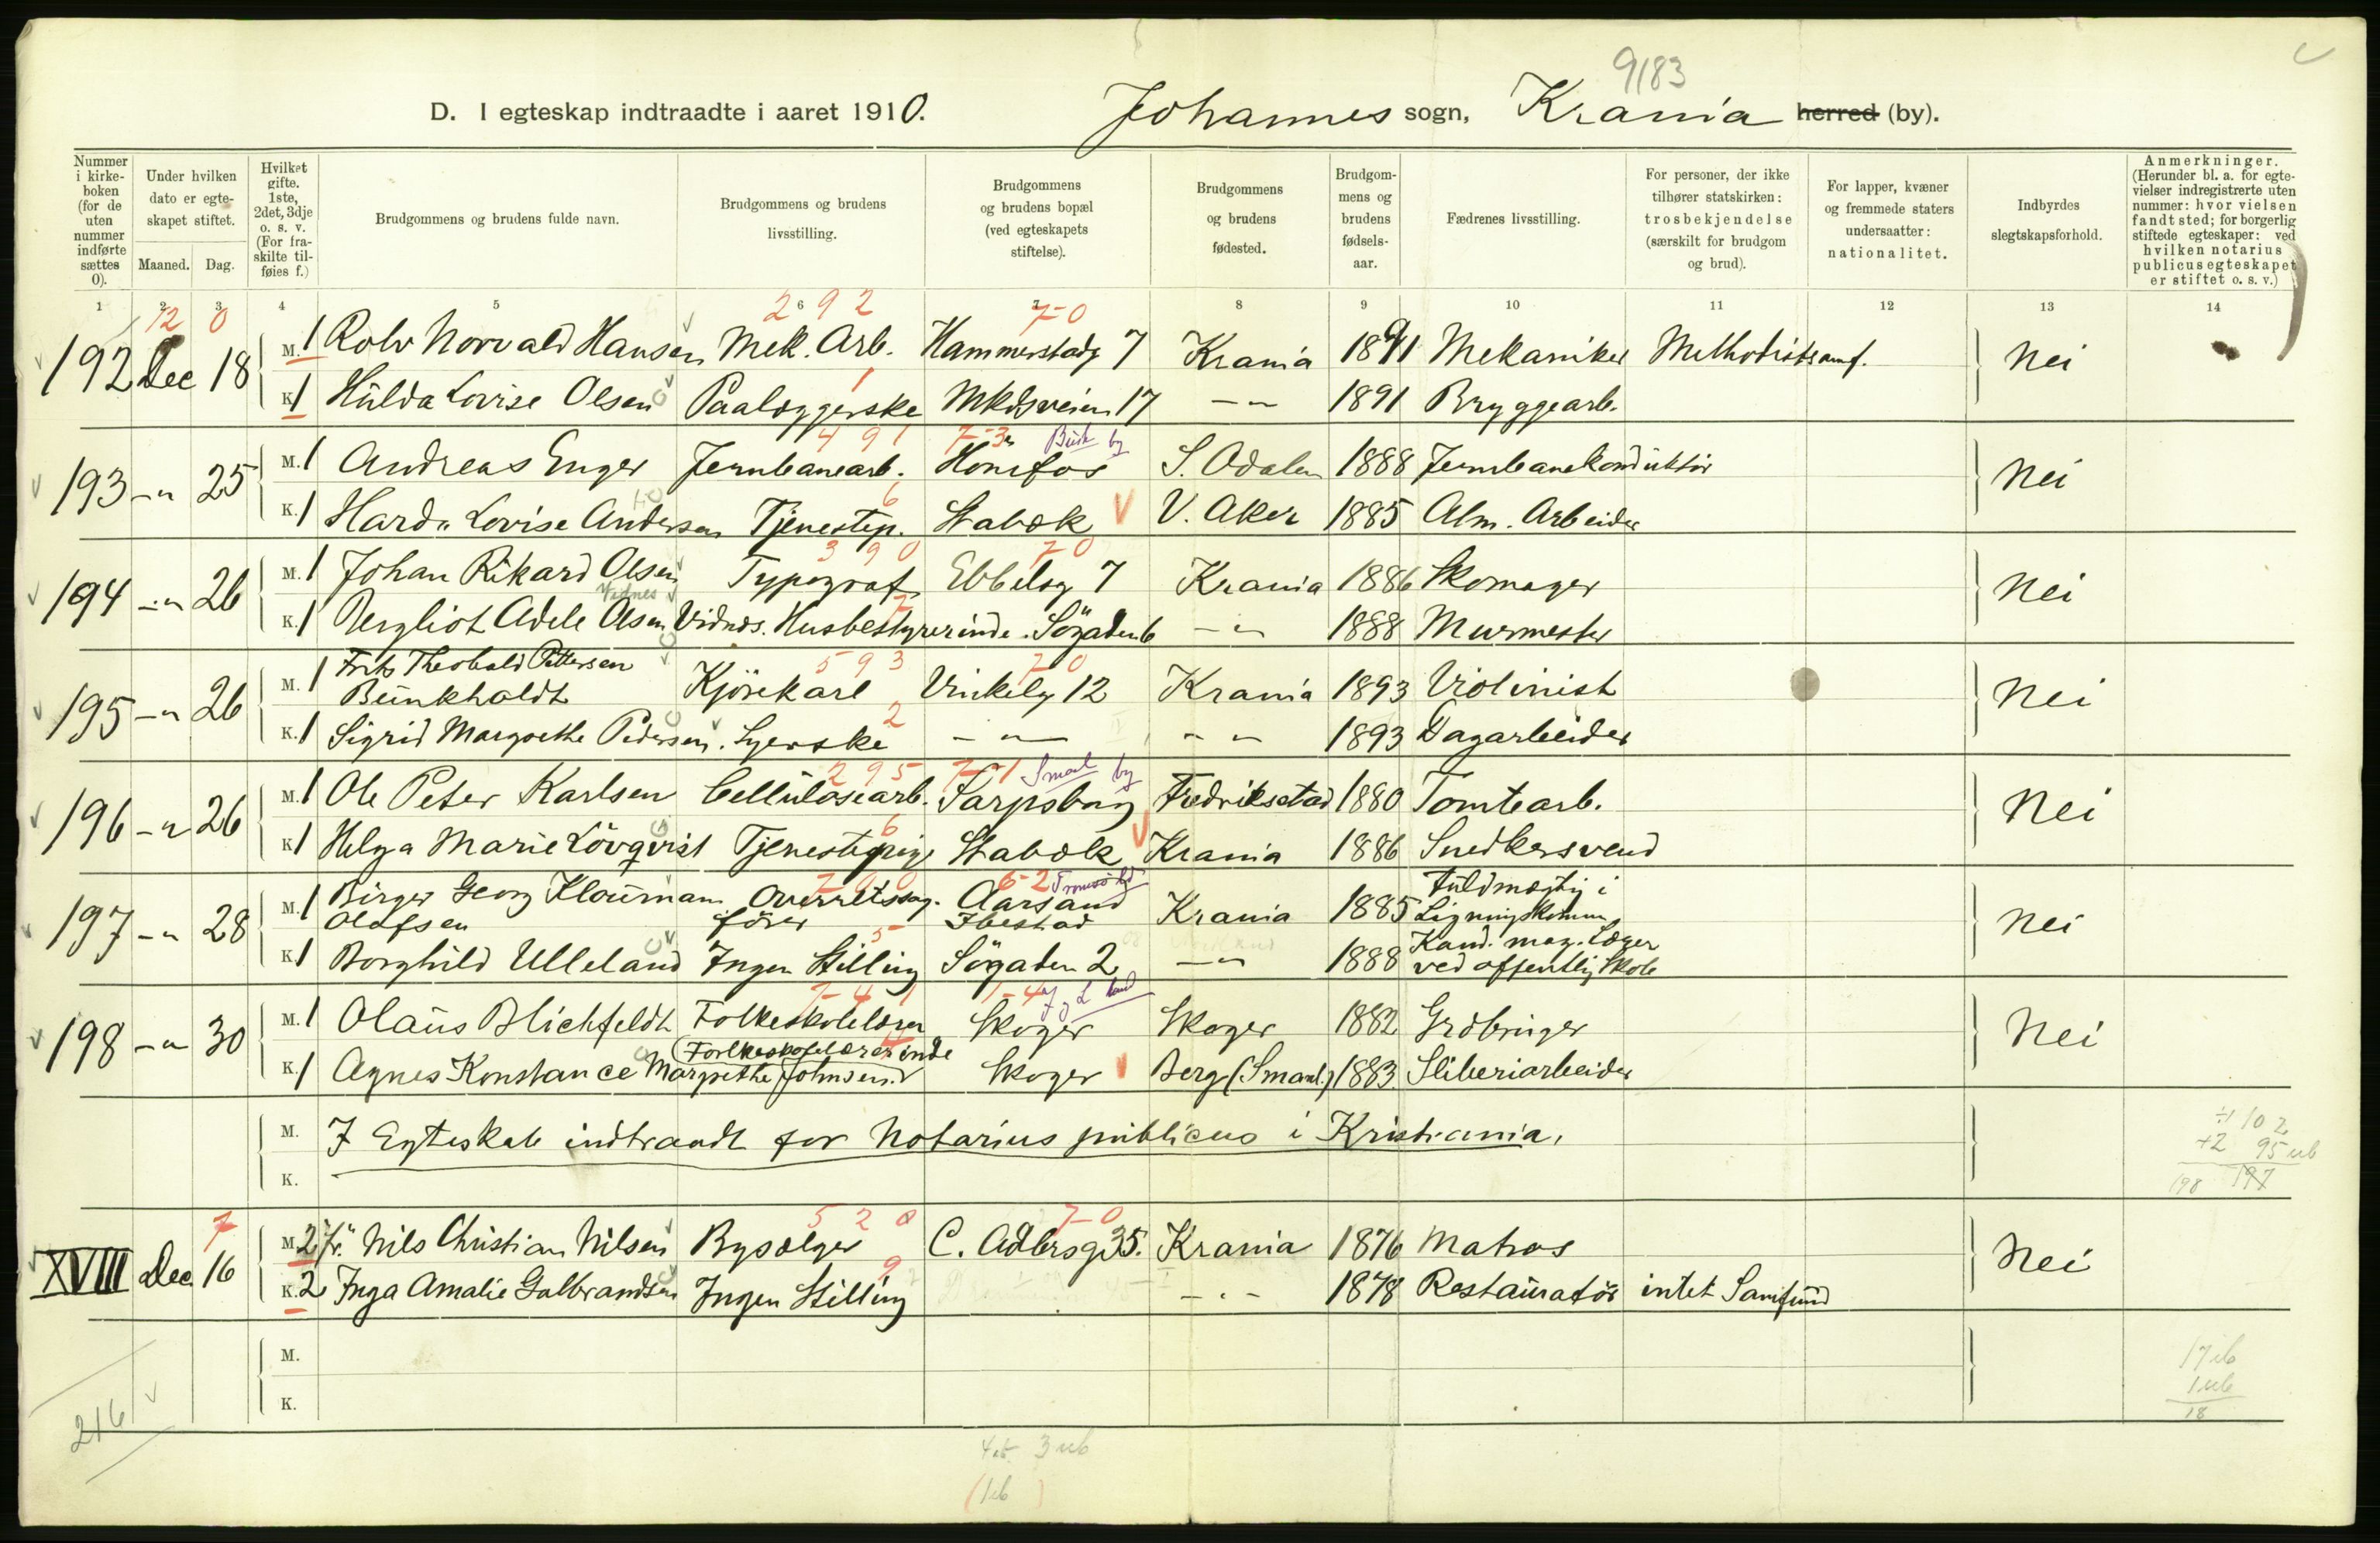 9183
D. I egteskap indtraadte i aaret 1910. Johannes sogn, Krania herred (by).
Nummer i kirke-boken (for de uten nummer indførte sættes 0).
Under hvilken dato er egte-skapet stiftet.
Maaned. Dag.
Hvilket gifte. 1ste, 2det, 3dje o. s. v. (For fra-skilte til-føies f.)
Brudgommens og brudens fulde navn.
Brudgommens og brudens livsstilling.
Brudgommens og brudens bopæl (ved egteskapets stiftelse).
Brudgommens og brudens fødested.
Brudgom-mens og brudens fødsels-aar.
Fædrenes livsstilling.
For personer, der ikke tilhører statskirken: trosbekjendelse (særskilt for brudgom og brud).
For lapper, kvæner og fremmede staters undersaatter: nationalitet.
Indbyrdes slegtskapsforhold.
Anmerkninger. (Herunder bl. a. for egte-vielser indregistrerte uten nummer: hvor vielsen fandt sted; for borgerlig stiftede egteskaper: ved hvilken notarius publicus egteskapet er stiftet o. s. v.)
1 2 3 4 5 6 7 8 9 10 11 12 13 14
12 0 292 7-0
192 Dec 18 M. 1 Rolv Norvald Hansen Mek. Arb. Hammerstadg 7 Krania 1891 Mekaniker Methodistsamf. Nei
1
K. 1 Hulda Lovise Olsen Paalæggerske Mkdsveien 17 -"- 1891 Bryggearb.
4 9 1 7-3 Busk by
193 -"- 25 M. 1 Andreas Enger Jernbanearb. Hönefos S. Odalen 1888 Jernbanekonduktör Nei
6
K. 1 Harda Lovise Andersen Tjenestep. Stabæk V. Aker 1885 Alm. Arbeider
3 9 0 7 0
194 -"- 26 M. 1 Johan Rikard Olsen Typograf Ebbelsg 7 Krania 1886 Skomager Nei
Vidnes 2
K. 1 Bergliot Adele Olsen Vidnes. Husbestyrerinde. Sögaden 6 -"- 1888 Murmester
5 9 3 7 0
195 -"- 26 M. 1 Frits Theobald Pettersen Bunkholdt Kjörekarl Vinkelg 12 Krania 1893 Violinist Nei
2
K. 1 Sigrid Margrethe Pedersen. Syerske -"- -"- 1893 Dagarbeider
2 9 5 7-1 Smaal by
196 -"- 26 M. 1 Ole Peter Karlsen Cellulosearb. Sarpsborg Fredrikstad 1880 Tomtearb. Nei
6
K. 1 Helga Marie Lövqvist Tjenestepige Stabæk Krania 1886 Snedkersvend
6-2 Tromsö
197 -"- 28 M. 1 Birger Georg Klouman Olafsen Overretssag-förer Aarsand Ibestad Krania 1885 Fuldmægtig i Ligningskomm. Nei
5
K. 1 Borghild Ulleland Ingen Stilling Sögaden 2 -"- 1888 Kand. mag. Læger ved offentlig Skole
7-4 1 1-4
198 -"- 30 M. 1 Olaus Blichfeldt Folkeskolelærer Skoger Skoger 1882 Gröbringer Nei
K. 1 Agnes Konstance Margrethe Johnsen. (Forlkeskolelærerinde Skoger Berg (Smaal.) 1883 Sliberiarbeider
M. I Egteskab indtraadt for Notarius publicus i Kristiania.
K.
÷1 102
+2 95 ub
198 197
7 5 2 0 7-0
XVIII Dec 16 M. 2 fr. Nils Christian Nilsen Bysælger C. Adlersg 35. Krania 1876 Matros Nei
9
K. 2 Inga Amalie Gulbrandsen Ingen Stilling -"- 1878 Restauratör intet Samfund
M.
K.
17 ub
1 ub
18
216
3 ub